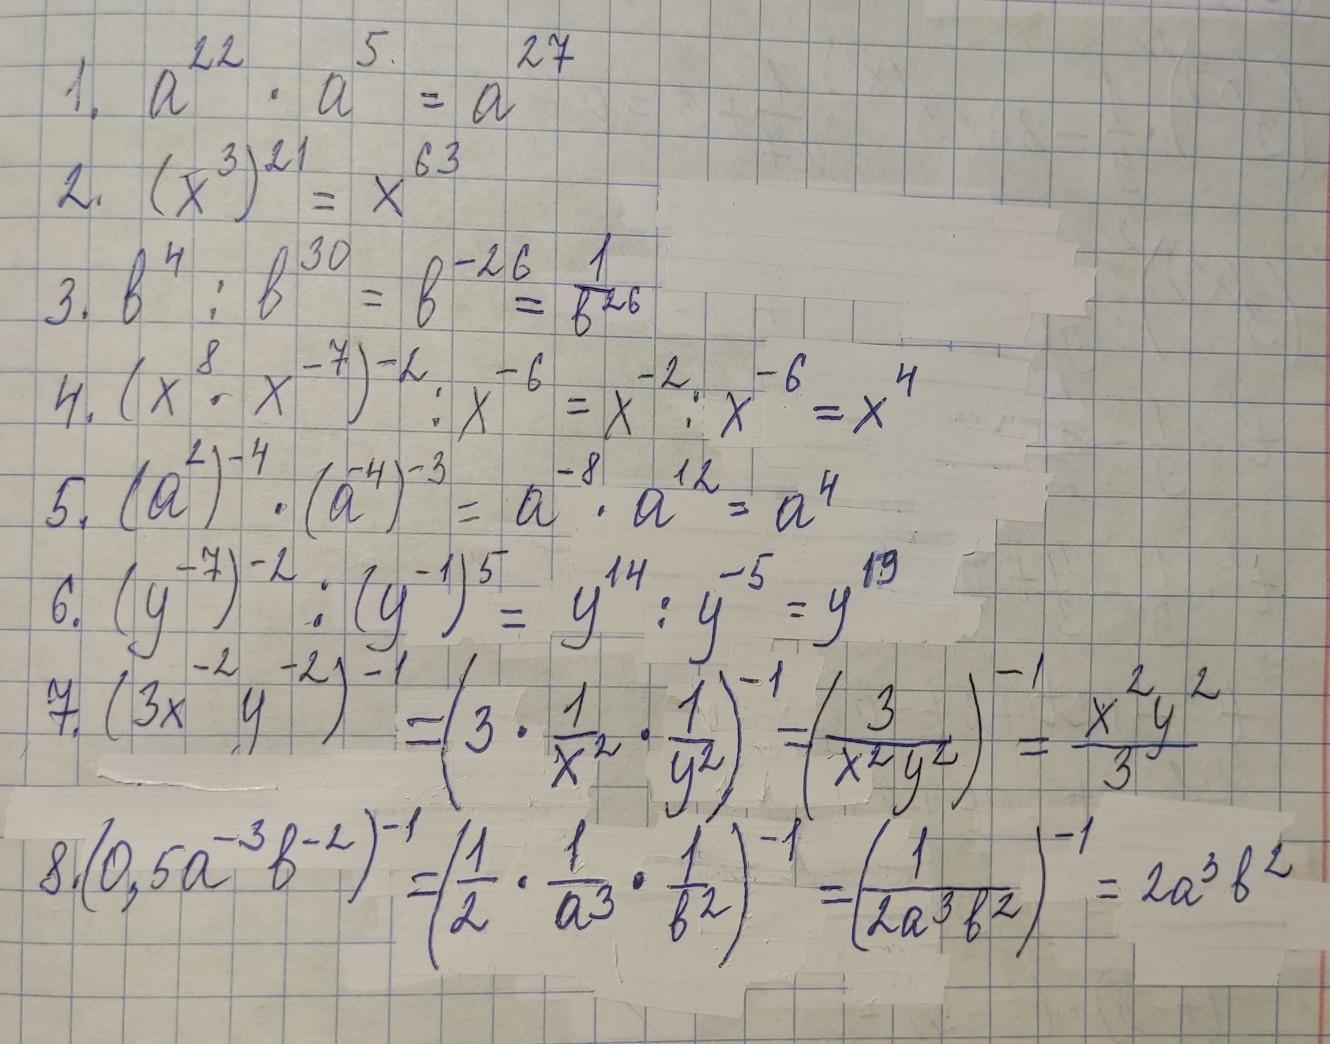 1. a²² · a⁵ = a²⁷
2. (x³)²¹ = x⁶³
3. в⁴ : в³⁰ = в⁻²⁶ = 1/в²⁶
4. (x⁸ · x⁻⁷)⁻² : x⁻⁶ = x⁻² : x⁻⁶ = x⁴
5. (a²)⁻⁴ · (a⁻⁴)⁻³ = a⁻⁸ · a¹² = a⁴
6. (y⁻⁷)⁻² : (y⁻¹)⁵ = y¹⁴ : y⁻⁵ = y¹⁹
7. (3x⁻² y⁻²)⁻¹ = (3 · 1/x² · 1/y²)⁻¹ = (3/x²y²)⁻¹ = x²y²/3
8. (0,5a⁻³в⁻²)⁻¹ = (1/2 · 1/a³ · 1/в²)⁻¹ = (1/2a³в²)⁻¹ = 2a³в²